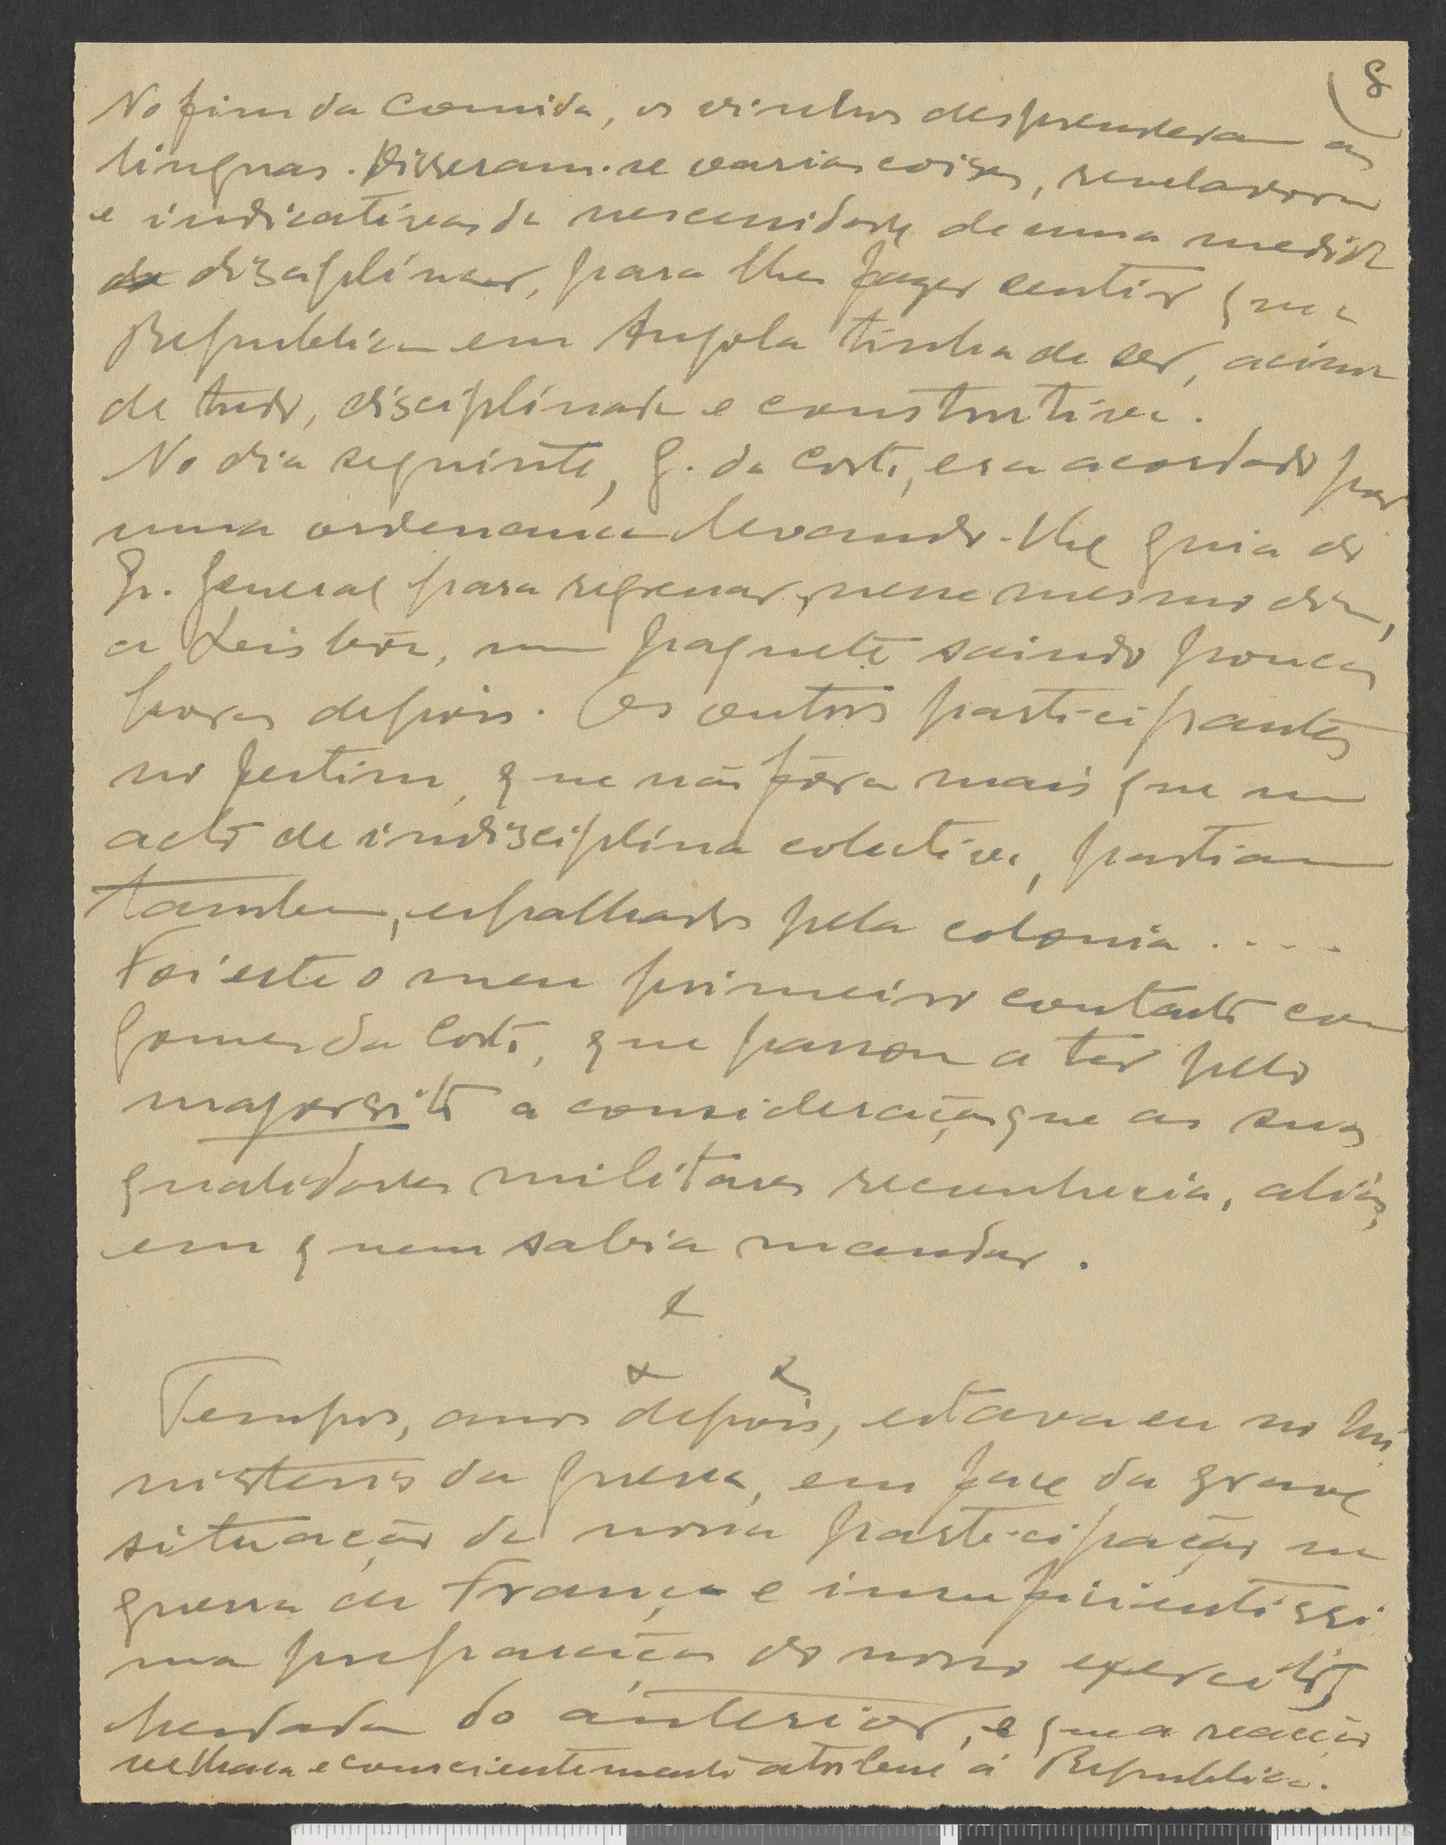 8
No fim da comida, os vinhos desprenderam as
linguas. Disseram-se varias coisas, reveladoras
e indicativas da necessidade de uma medida
disciplinar, para lhes fazer sentir que a
Republica em Angola tinha de ser, acima
de tudo, disciplinada e construtiva.
No dia seguinte, G. da Costa, era acordado por
uma ordenança levando-lhe guia do
Qr. General para regressar, nesse mesmo dia,
a Leisbôa, num paquete saindo poucas
horas depois. Os outros participantes
no festim, que não fôra mais que um
acto de indisciplina colectiva, partiam
tambem, espalhados pela colonia . . . .
Foi este o meu primeiro contacto com
Gomes da Costa, que passou a ter pelo
majorsito a consideração que as suas
qualidades militares reconhecia, aliás,
em quem sabia mandar.
x
x x
Tempos, anos depois, estava eu no Mi
nisterio da Guerra, em face da grave
situação da nossa participação na
guerra em França e insuficientissi
ma preparação do nosso exercito,
herdada do anterior, e que a reacção
velhaca e conscientemente atribue á Republica.